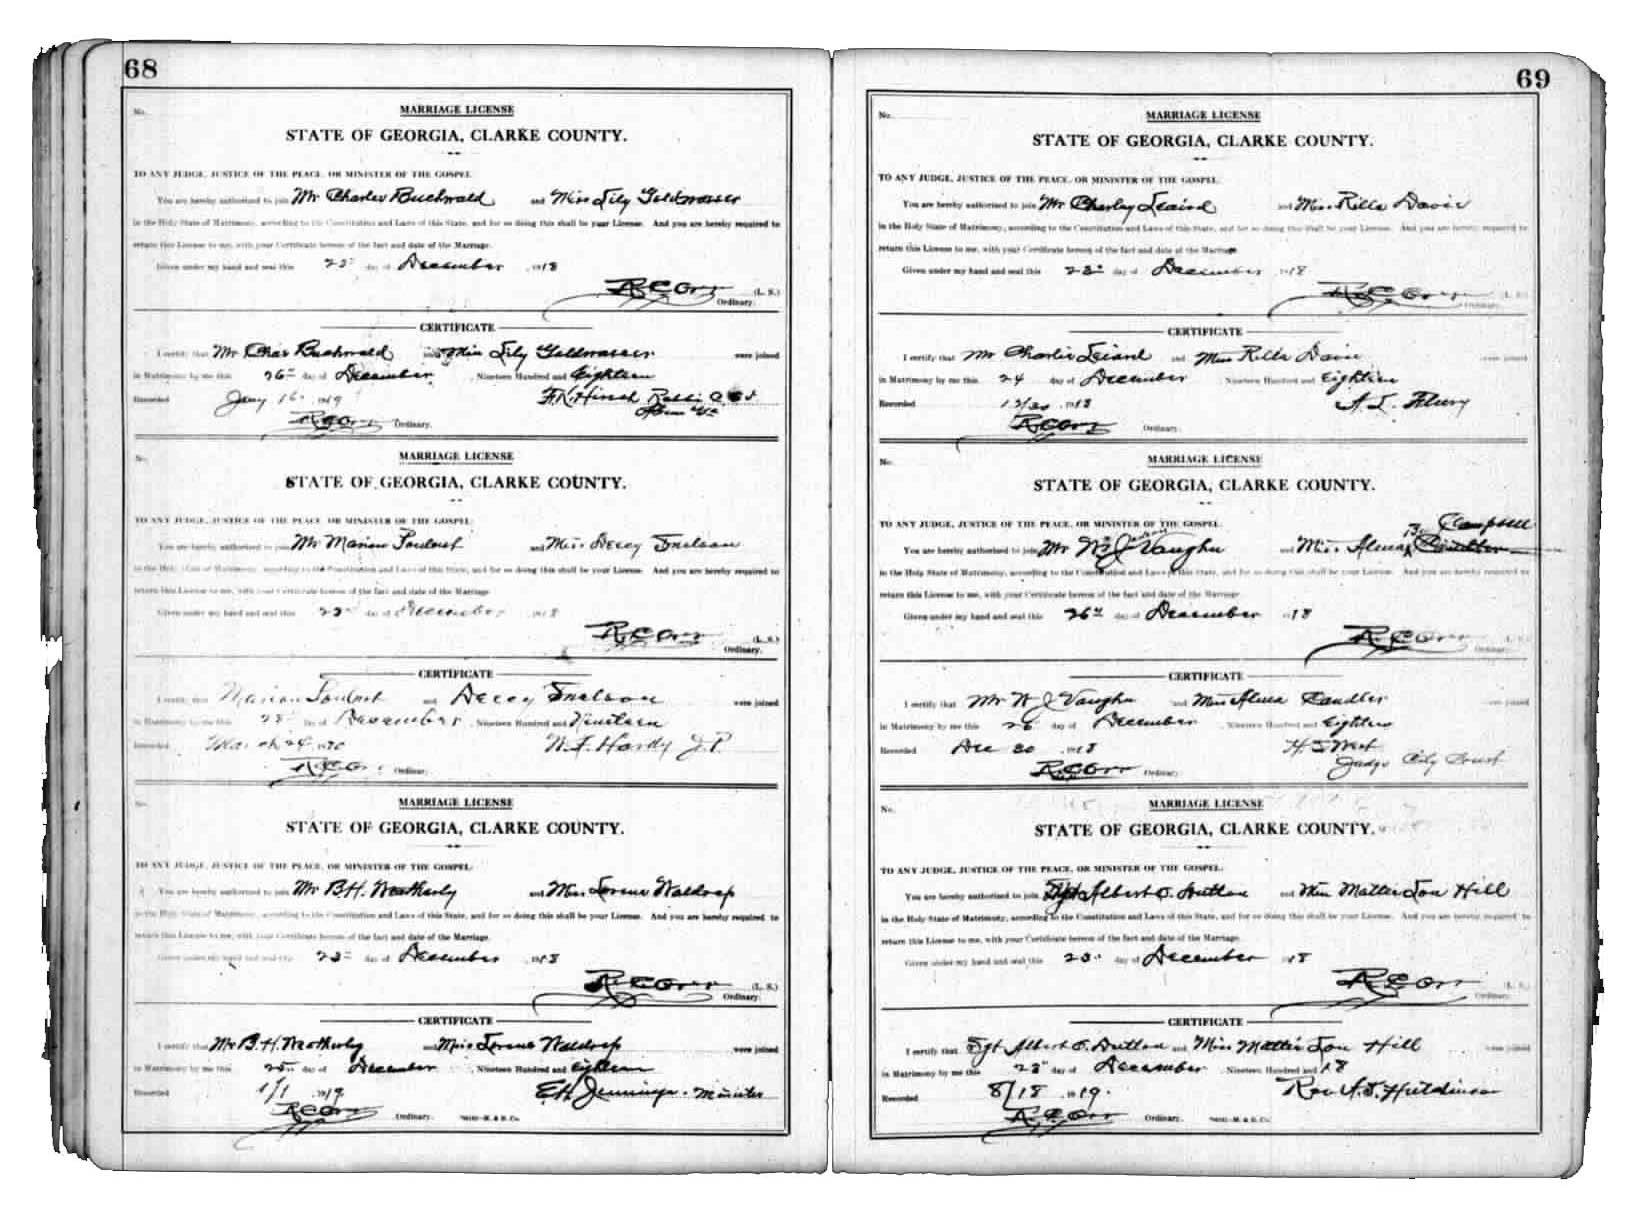 68
No.
MARRIAGE LICENSE
STATE OF GEORGIA, CLARKE COUNTY.
TO ANY JUDGE, JUSTICE OF THE PEACE, OR MINISTER OF THE GOSPEL
You are hereby authorized to join Mr Charles Buchwald and Miss Lily Goldwasser
in the Holy State of Matrimony, according to the Constitution and Laws of this State, and for so doing this shall be your License. And you are hereby required to
return this License to me, with your Certificate hereon of the fact and date of the Marriage.
Given under my hand and seal this day of December 1918
R C Orr (L. S.)
Ordinary.
CERTIFICATE
I certify that Mr Chas Buchwald and Miss Lily Goldwasser were joined
in Matrimony by me this 26 day of December, Nineteen Hundred and Eighteen
Recorded Jany 1919 Hirsch Rabbi
R C Orr Ordinary.
No.
MARRIAGE LICENSE
STATE OF GEORGIA, CLARKE COUNTY.
TO ANY JUDGE, JUSTICE OF THE PEACE, OR MINISTER OF THE GOSPEL:
You are hereby authorized to join Mr Marion and Miss Snelson
in the Holy State of Matrimony, according to the Constitution and Laws of this State, and for so doing this shall be your License. And you are hereby required to
return this License to me, with your Certificate hereon of the fact and date of the Marriage.
Given under my hand and seal this day of December 1918
R C Orr (L. S.)
Ordinary.
CERTIFICATE
I certify that Marion and Snelson were joined
in Matrimony by me this day of December, Nineteen Hundred and Nineteen
Recorded March 24 Hardy J.P.
R C Orr Ordinary.
No.
MARRIAGE LICENSE
STATE OF GEORGIA, CLARKE COUNTY.
TO ANY JUDGE, JUSTICE OF THE PEACE, OR MINISTER OF THE GOSPEL:
You are hereby authorized to join Mr B.H. Weatherly and Miss Waldrop
in the Holy State of Matrimony, according to the Constitution and Laws of this State, and for so doing this shall be your License. And you are hereby required to
return this License to me, with your Certificate hereon of the fact and date of the Marriage.
Given under my hand and seal this day of December 1918
R C Orr (L. S.)
Ordinary.
CERTIFICATE
I certify that Mr B.H. Weatherly and Miss Waldrop were joined
in Matrimony by me this day of December Nineteen Hundred and Eighteen
Recorded 1/1 1919 E.H. Jennings. Minister
R C Orr Ordinary.
69
No.
MARRIAGE LICENSE
STATE OF GEORGIA, CLARKE COUNTY.
TO ANY JUDGE, JUSTICE OF THE PEACE, OR MINISTER OF THE GOSPEL:
You are hereby authorized to join Mr Charley and Miss Rilla Davis
in the Holy State of Matrimony, according to the Constitution and Laws of this State, and for so doing this shall be your License. And you are hereby required to
return this License to me, with your Certificate hereon of the fact and date of the Marriage
Given under my hand and seal this day of December 1918
R C Orr (L. S.)
Ordinary.
CERTIFICATE
I certify that Mr Charlie and Miss Rilla Davis were joined
in Matrimony by me this 24 day of December, Nineteen Hundred and Eighteen
Recorded 12/30 1918
R C Orr Ordinary.
No.
MARRIAGE LICENSE
STATE OF GEORGIA, CLARKE COUNTY.
TO ANY JUDGE, JUSTICE OF THE PEACE, OR MINISTER OF THE GOSPEL. Campbell
You are hereby authorized to join Mr W J Vaughn and Miss Alma
in the Holy State of Matrimony, according to the Constitution and Laws of this State, and for so doing this shall be your License. And you are hereby required to
return this License to me, with your Certificate hereon of the fact and date of the Marriage
Given under my hand and seal this 26th day of December 1918
R C Orr (L. S.)
Ordinary.
CERTIFICATE
I certify that Mr W J Vaughn and Miss Alma Candler were joined
in Matrimony by me this 26 day of December, Nineteen Hundred and Eighteen
Recorded Dec 30 1918 West
R C Orr Ordinary. Judge City Court
No.
MARRIAGE LICENSE
STATE OF GEORGIA, CLARKE COUNTY.
TO ANY JUDGE, JUSTICE OF THE PEACE, OR MINISTER OF THE GOSPEL:
You are hereby authorized to join Sgt Albert O. Hutton and Miss Mattie Lou Hill
in the Holy State of Matrimony, according to the Constitution and Laws of this State, and for so doing this shall be your License. And you are hereby required to
return this License to me, with your Certificate hereon of the fact and date of the Marriage.
Given under my hand and seal this day of December 1918
R C Orr (L. S.)
Ordinary.
CERTIFICATE
I certify that Sgt Albert O. and Miss Mattie Lou Hill were joined
in Matrimony by me this day of December Nineteen Hundred and 18
Recorded 8/18 1919. Rev Hutchinson
R C Orr Ordinary.